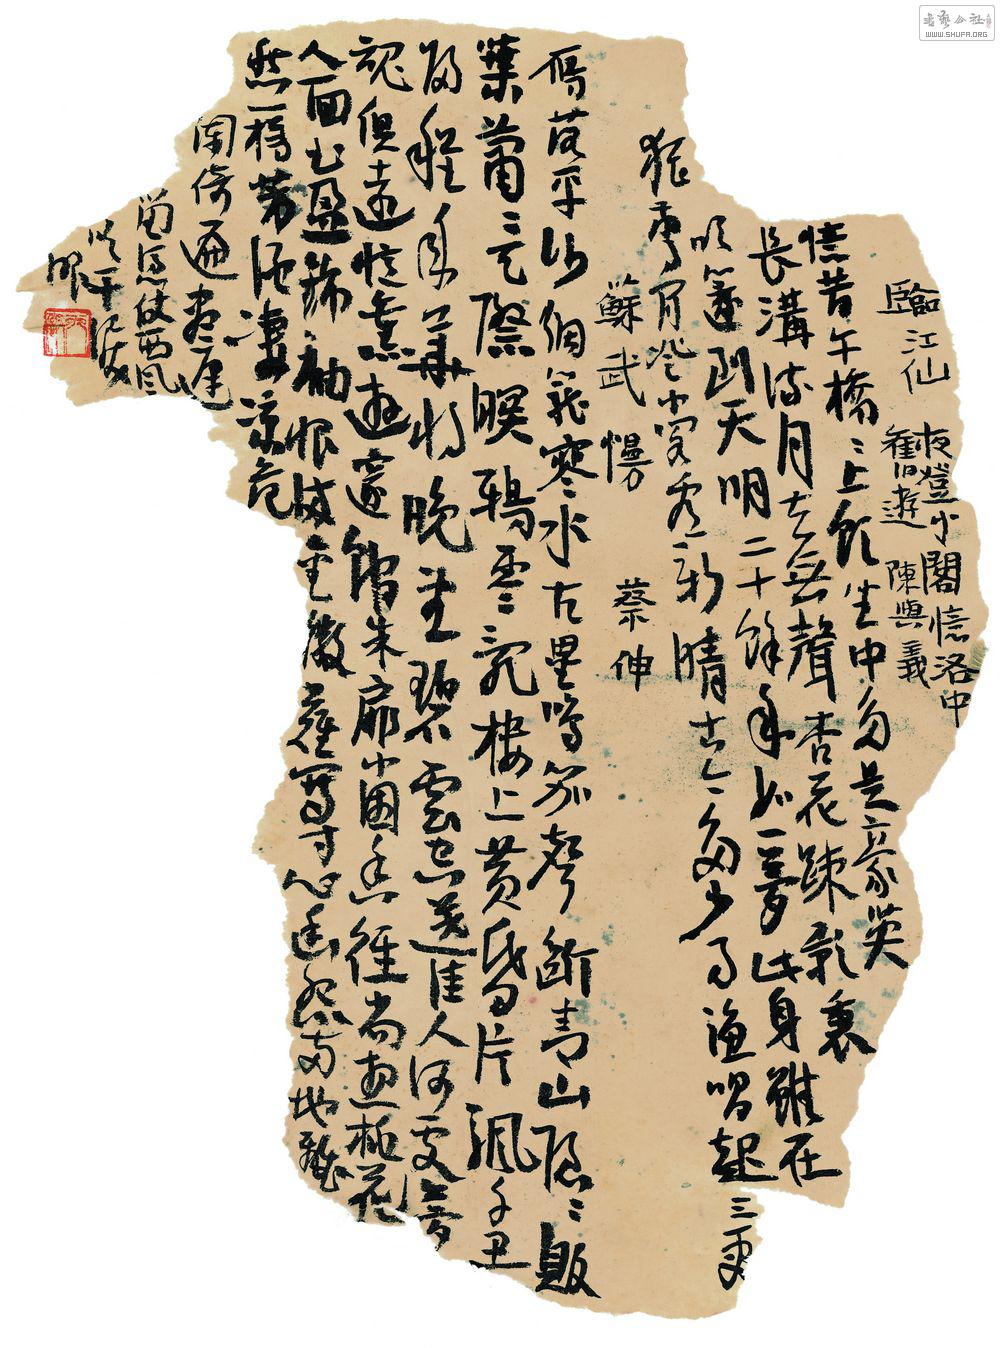 臨江仙 夜登小閣憶洛中
舊遊 陳與義
憶昔午橋〻上飲坐中多是豪英
長溝流月去無聲杏花疎影裏
吹篴到天明二十餘年如一夢此身雖在
堪驚閒登小閣看新晴古今多少事漁唱起三更
蘇武慢 蔡伸
雁落平沙烟籠寒水古壘鳴笳聲斷青山隱〻敗
葉蕭〻天際暝鴉零亂樓上黃昏片帆千里
歸程年華將晚望碧雲空暮佳人何處夢
魂俱遠憶舊遊邃館朱扉小園香徑尚想桃花
人面書盈錦軸恨滿金徽難寫寸心幽怨兩地離
愁一樽芳酒淒涼危
闌倚遍盡遲
留憑仗西風
吹干淚
眼
WWW.SHUFA.ORG